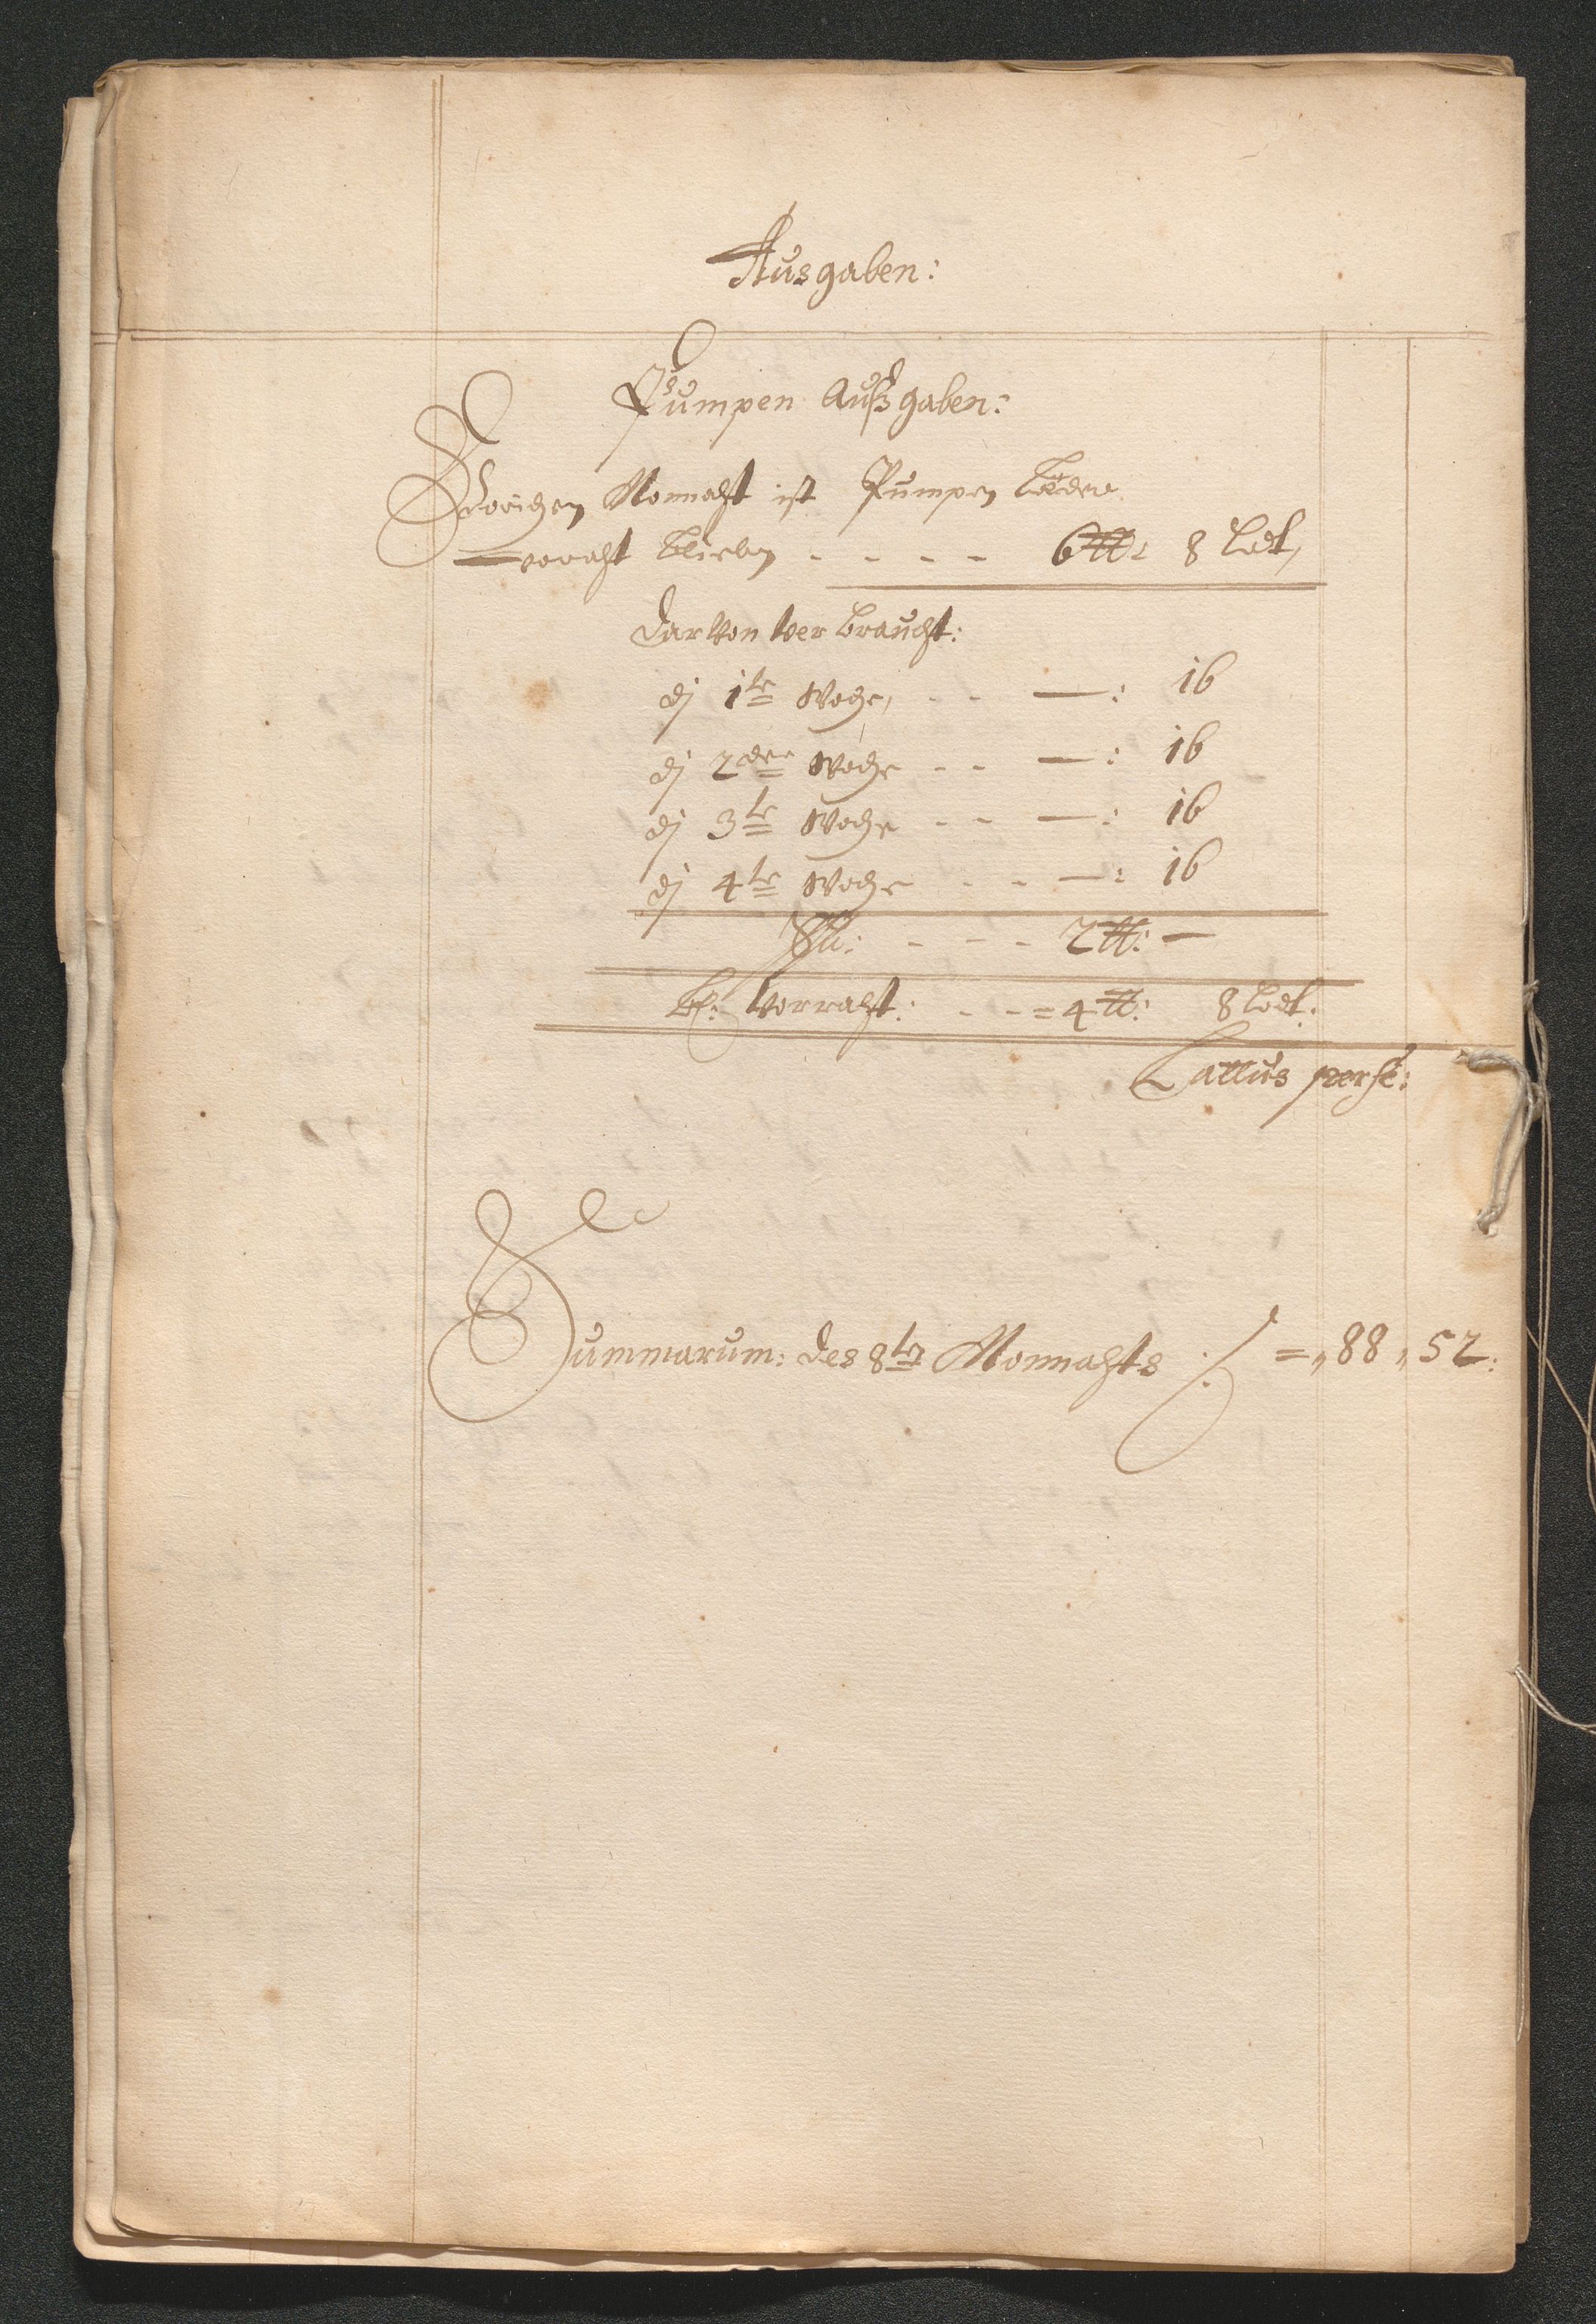 Ausgaben:
Pumpen Außgaben:
Vorigen Monnaht ist Pumpen Leder
vorraht blieben - - - - 6 ℔: 8 Lodt,
Dar Von Ver braucht:
dj 1te Woche, - - —: 16
dj 2dere Woche - - —: 16
dj 3te Woche - - —: 16
dj 4te Woche - - —: 16
Su: - - - 2 ℔: —
bl: Vorraht: - - = 4 ℔: 8 Lodt:
Lattus perse:
Summarum: des 8ten Monnahts ·/. = „ 88 „ 52: